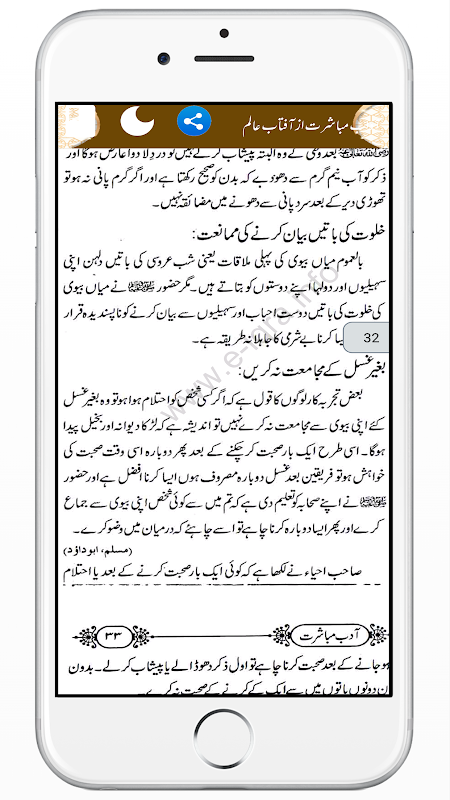 مباشرت از آفتاب عالم
بعد وطی کے وہ البتہ پیشاب کرتے ہیں تو درد لا دوا عارض ہوگا اور
ذکر کو آب نیم گرم سے دھودے کہ بدن کو صحیح رکھتا ہے اور اگر گرم پانی نہ ہو تو
تھوڑی دیر کے بعد سرد پانی سے دھونے میں مضائقہ نہیں۔
خلوت کی باتیں بیان کرنے کی ممانعت:
بالعموم میاں بیوی کی پہلی ملاقات یعنی شب عروسی کی باتیں دلہن اپنی
سہیلیوں اور دولہا اپنے دوستوں کو بتاتے ہیں۔ مگر حضور ﷺ نے میاں بیوی
کی خلوت کی باتیں دوست احباب اور سہیلیوں سے بیان کرنے کو ناپسندیدہ قرار
32
یسا کرنا بے شرمی کا جاہلانہ طریقہ ہے۔
بغیر غسل کے مجامعت نہ کریں:
بعض تجربہ کار لوگوں کا قول ہے کہ اگر کسی شخص کو احتلام ہوا ہو تو وہ بغیر غسل
کئے اپنی بیوی سے مجامعت نہ کرے نہیں تو اندیشہ ہے کہ لڑکا دیوانہ اور بخیل پیدا
ہوگا۔ اسی طرح ایک بار صحبت کر چکنے کے بعد پھر دوبارہ اسی وقت صحبت کی
خواہش ہو تو فریقین بعد غسل دوبارہ مصروف ہوں ایسا کرنا افضل ہے اور حضور
ﷺ نے اپنے صحابہ کو تعلیم دی ہے کہ تم میں سے کوئی شخص اپنی بیوی سے جماع
کرے اور پھر ایسا دوبارہ کرنا چاہے تو اسے چاہئے کہ درمیان میں وضو کرے۔
(مسلم، ابوداؤد)
صاحب احیاء نے لکھا ہے کہ کوئی ایک بار صحبت کرنے کے بعد یا احتلام
آدب مباشرت
۳۳
ہوجانے کے بعد صحبت کرنا چاہے تو اول ذکر دھو ڈالے یا پیشاب کرلے۔ بدون
ن دونوں باتوں میں سے ایک کے کرنے کے صحبت نہ کرے۔